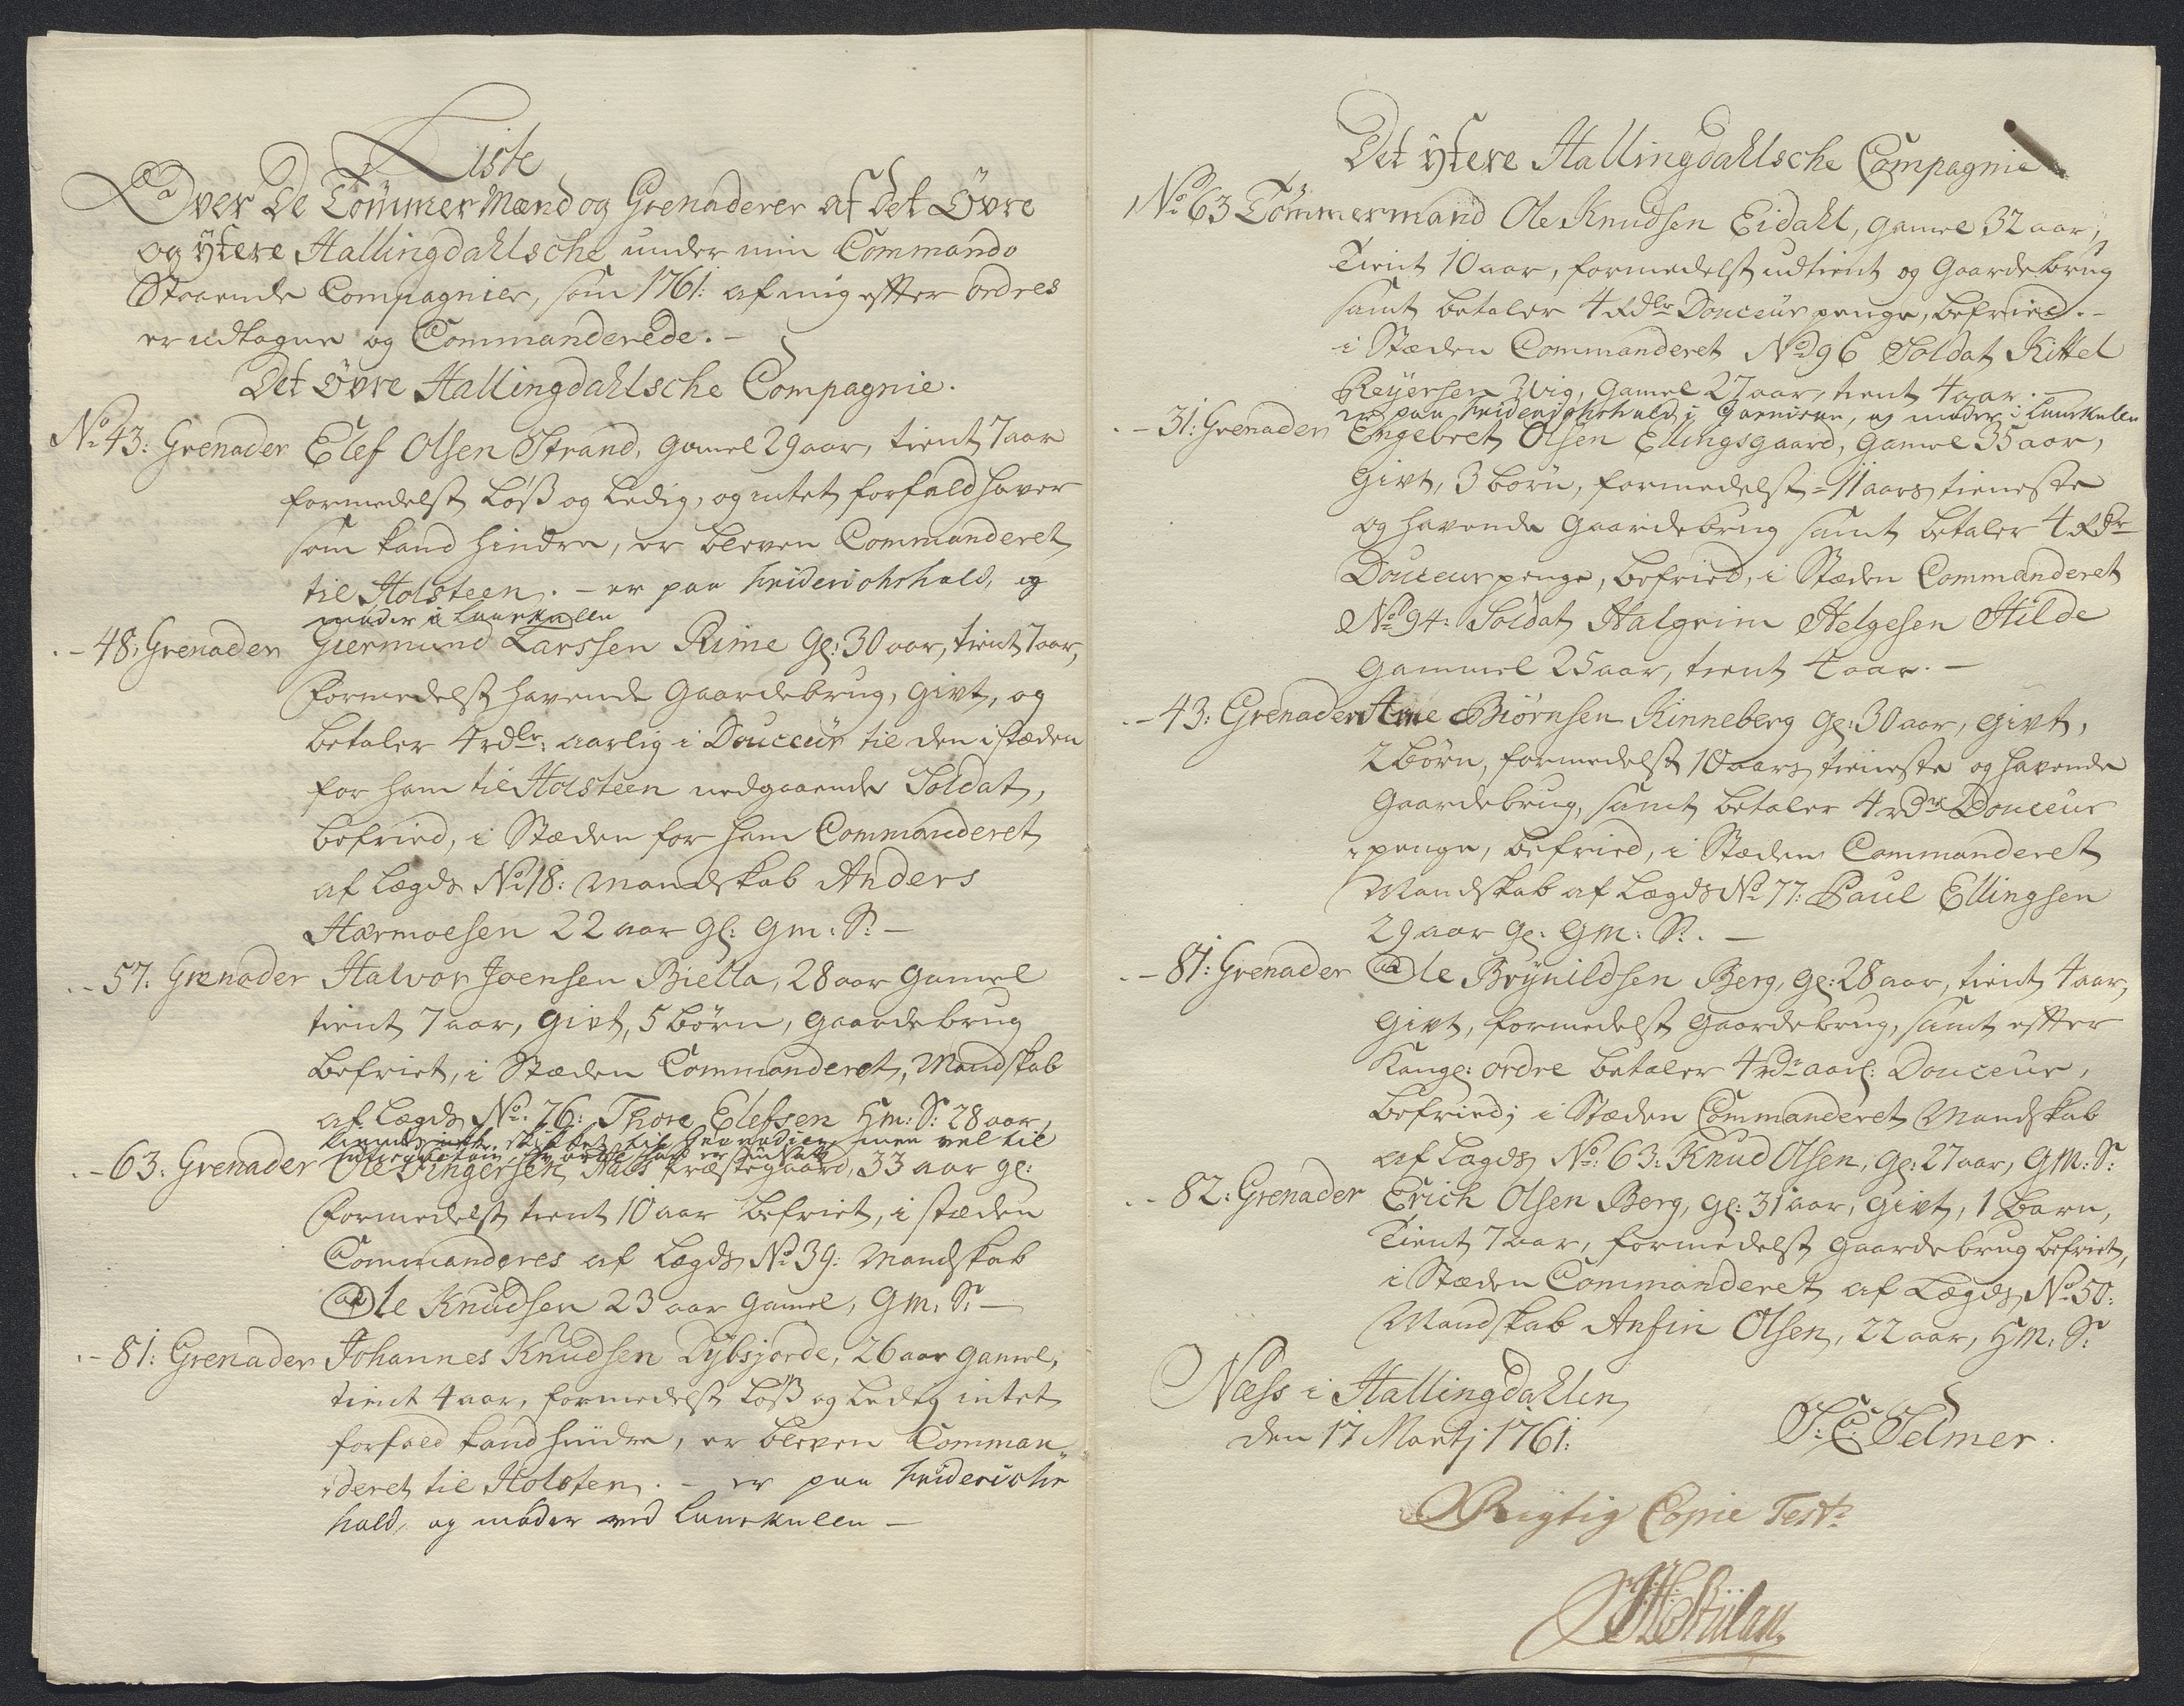 Liste
Over De Tömmer Mænd og Grenaderer af det Övre
og ÿtere Hallingdahlsche under min Commando
Staaende Compagnier, som 1761: af mig effter ordres
er udtagne og Commanderede. -
Det Övre Hallingdahlsche Compagnie.
No 43: Grenader Elef Olsen Strand, gamel 29 aar, tient 7 aar
formedelst Löß og Ledig, og intet forfald haver
som kand hindre, er bleven Commanderet
til Holsteen. - er paa Friderichshald, og
möder i Laurkullen
- 48: Grenader Giermund Larssen Rime gl: 30 aar, tient 7 aar,
formedelst havende Gaardebrug, givt, og
betaler 4 rdlr: aarlig i Douceur til den i stæden
for ham til Holsteen nedgaaende Soldat,
befried, i Stæden for ham Commanderet
af Lægds No 18: Mandskab Anders
Harmoesen 22 aar gl: gm: S: -
- 57: Grenader Halvor Joensen Biella, 28 aar gamel
tient 7 aar, givt, 5 börn, gaardebrug
befriet, i Stæden Commanderet, Mandskab
af Lægds No: 76: Thore Elefsen Hm: S: 28 aar,
skikket til Grenadier, men vel til
- 63: Grenader Ole Næs Præstegaard, 33 aar gl:
formedelst tient 10 aar befriet, i stæden
Commanderes af Lægds No 39: Mandskab
Ole Knudsen 23 aar gamel, gm: S: -
- 81: Grenader Johannes Knudsen Dybsjorde, 26 aar gamel,
tient 4 aar, formedelst Löß og Ledig intet
forfald kand hindre, er bleven Comman-
deret til Holsten. - er paa Friderichs
hald, og möder ved Laurkullen -
Det ÿtere Hallingdahlsche Compagnie
No 63 Tömmermand Ole Knudsen Eidahl, gamel 32 aar,
Tient 10 aar, formedelst udtient og Gaardebrug
samt betaler 4 Rdlr Douceur penge, befried. -
i Stæden Commanderet No 96 Soldat Kittel
Reÿersen Wig, gamel 27 aar, tient 4 aar. -
er paa Friderichshald i Garnison, og möder i Laurkullen
- 31: Grenader Engebret Olsen Ellingsgaard, gamel 35 aar,
Givt, 3 börn, formedelst - 11 aars tieneste
og havende Gaardebrug samt betaler 4 Rdr
Douceur penge, befried, i Stæden Commanderet
No 94: Soldat Halgrim Helgesen Hilde
gammel 25 aar, tient 4 aar. -
- 43: Grenader Arne Biörnsen Kinneberg gl: 30 aar, givt,
2 börn, formedelst 10 aars tieneste og havende
Gaardebrug, samt betaler 4 rdr Douceur
penge, befried, i Stæden Commanderet
Mandskab af Lægds No 77: Paul Ellingsen
29 aar gl: gm: S:. -
- 81: Grenader Ole Brÿnildsen Berg, gl: 28 aar, tient 4 aar,
Givt, formedelst Gaardebrug, samt effter
Kongl: ordre betaler 4 rdr aarl: Douceur,
befried; i Stæden Commanderet Mandskab
af Lægds No: 63: Knud Olsen, gl: 27 aar, gm: S:
- 82: Grenader Erich Olsen Berg, gl: 31 aar, givt, 1 barn,
Tient 7 aar, formedelst gaardebrug befriet,
i Stæden Commanderet af Lægds No 50:
Mandskab Anfin Olsen, 22 aar, Hm: S:
Næss i Hallingdahlen
den 17 Martj 1761:
J: C: Selmer.
Rigtig Copie Test: